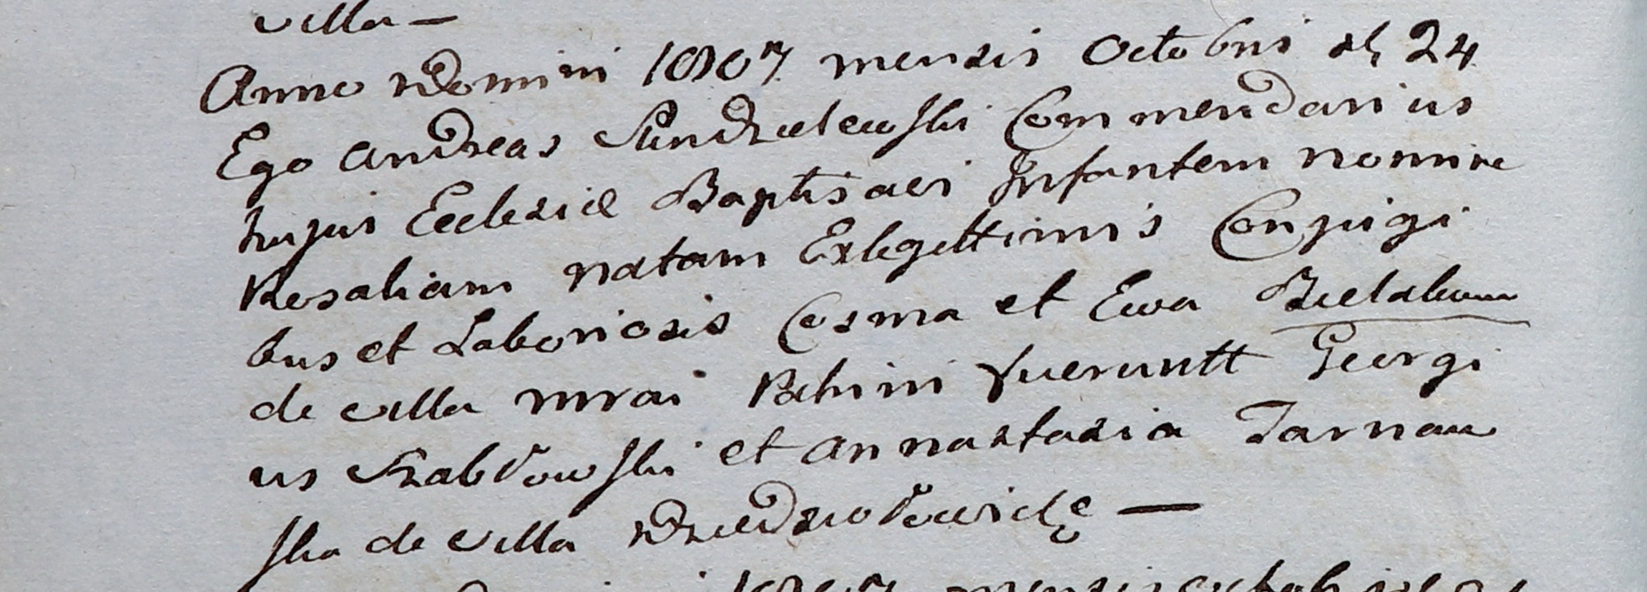 villa —
Anno Domini 1807 mensis Octobris d 24
Ego Andreas Commendarius
hujus Ecclesiæ Baptisavi Infantem nomine
Rosaliam natam Exlegittimis Conjugi
bus et Laboriosis Cosma et Ewa
de villa Patrini fuerunt Georgi
us Szabłowski et Annastasia Tarnaw
ska de villa
1807 mensis